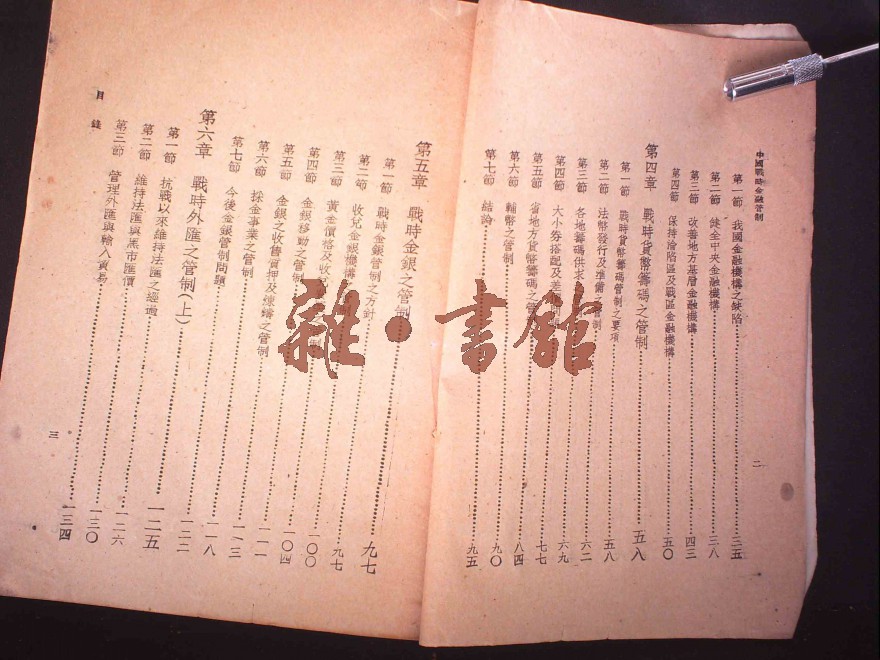 中國戰時金融管制
二
第一節 我國金融機構之缺陷 三五
第二節 健全中央金融機構 三八
第三節 改善地方基層金融機構 四三
第四節 保持淪陷區及戰區金融機構 五〇
第四章 戰時貨幣籌碼之管制 五八
第一節 戰時貨幣籌碼管制之要項 五八
第二節 法幣發行及準備之管制 六二
第三節 各地籌碼供求 六九
第四節 大小券搭配及差 七七
第五節 省地方貨幣籌碼之管 八四
第六節 輔幣之管制 九〇
第七節 結論 九五
第五章 戰時金銀之管制 九七
第一節 戰時金銀管制之方針 九七
第二節 收兌金銀機構 一〇〇
第三節 黃金價格及收兌 制 一〇四
第四節 金銀移動之管制 一一一
第五節 金銀之收售質押及鎔鑄之管制 一一三
第六節 採金事業之管制 一一八
第七節 今後金銀管制問題 一二二
第六章 戰時外匯之管制(上) 一二五
第一節 抗戰以來維持法匯之經過 一二六
第二節 維持法匯與黑市匯價 一三〇
第三節 管理外匯與輸入貿易 一三四
目錄
三
雜·書館